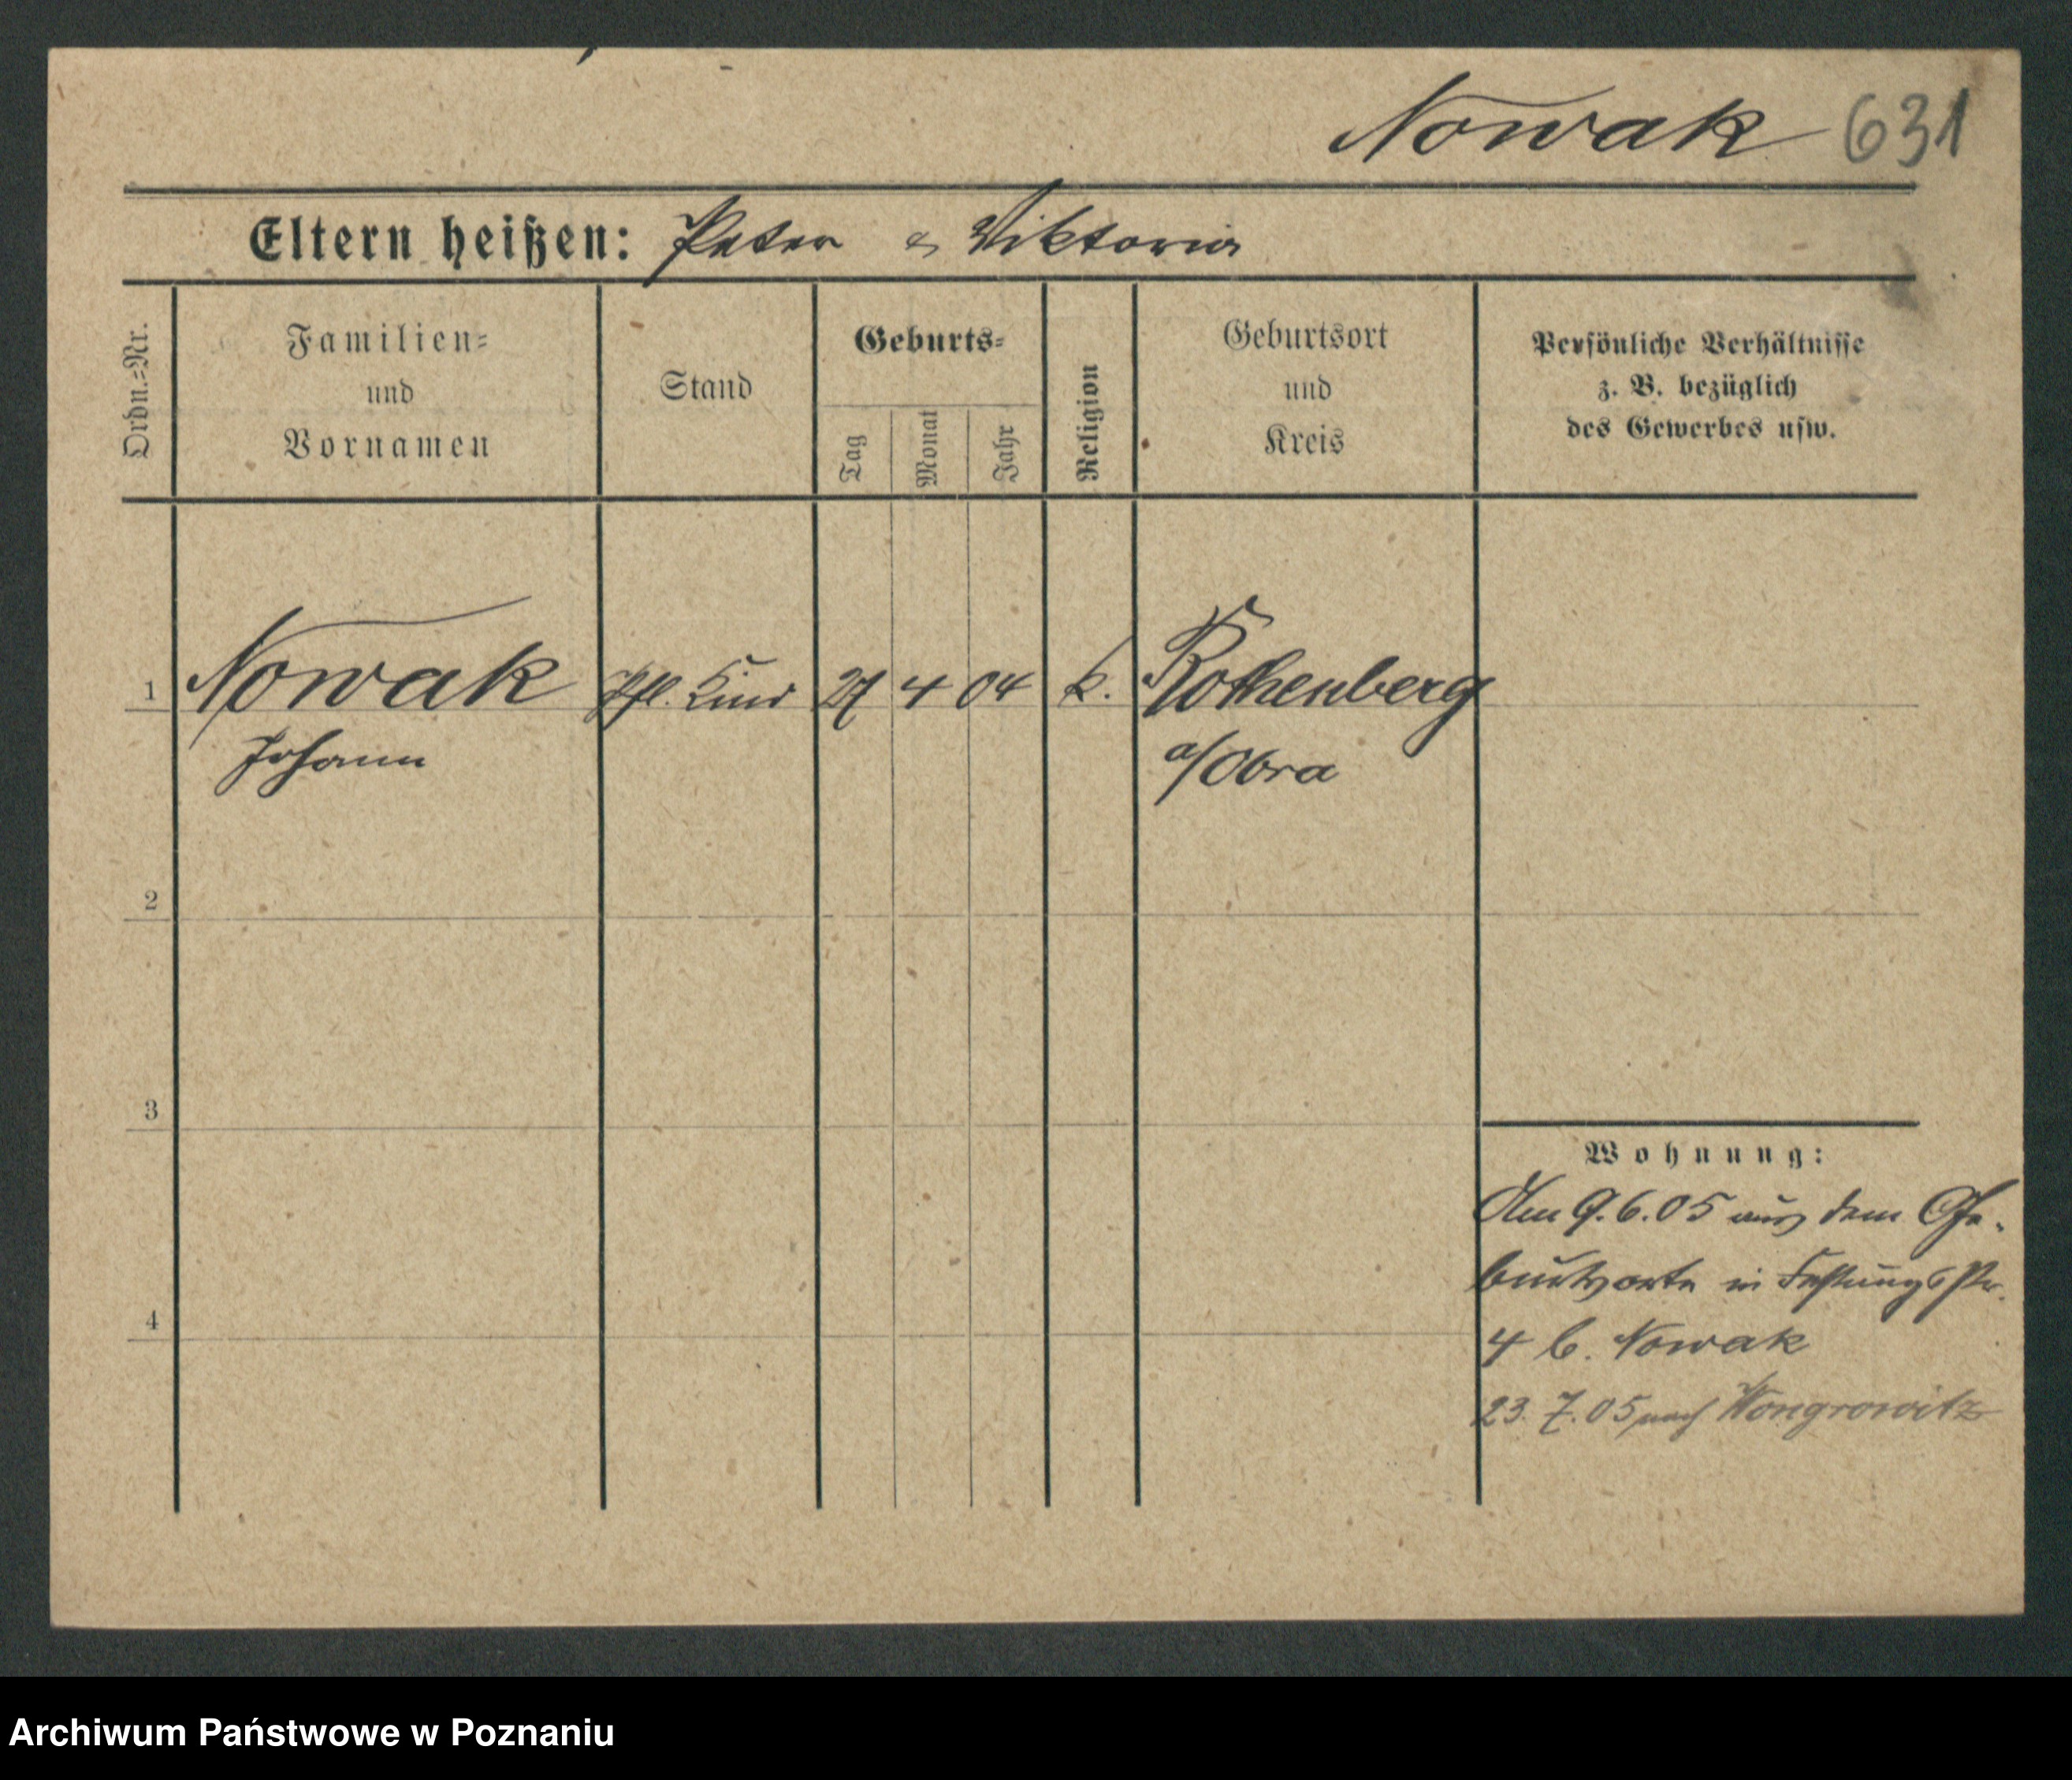 Nowak 631
Eltern heißen: Peter & Viktoria
Ordn.=Nr.
Familien=
und
Vornamen
Stand
Geburts=
Tag
Monat
Jahr
Religion
Geburtsort
und
Kreis
Persönliche Verhältnisse
z. B. bezüglich
des Gewerbes usw.
1 Nowak Pfl. Kind 27 4 04 k. Rothenberg
Johann a/Obra
2
3
4
Wohnung:
Am 9.6.05 aus dem Ge-
burtsorte in Festungsstr.
4 b. Nowak
23.7.05 nach Wongrowitz
Archiwum Państwowe w Poznaniu